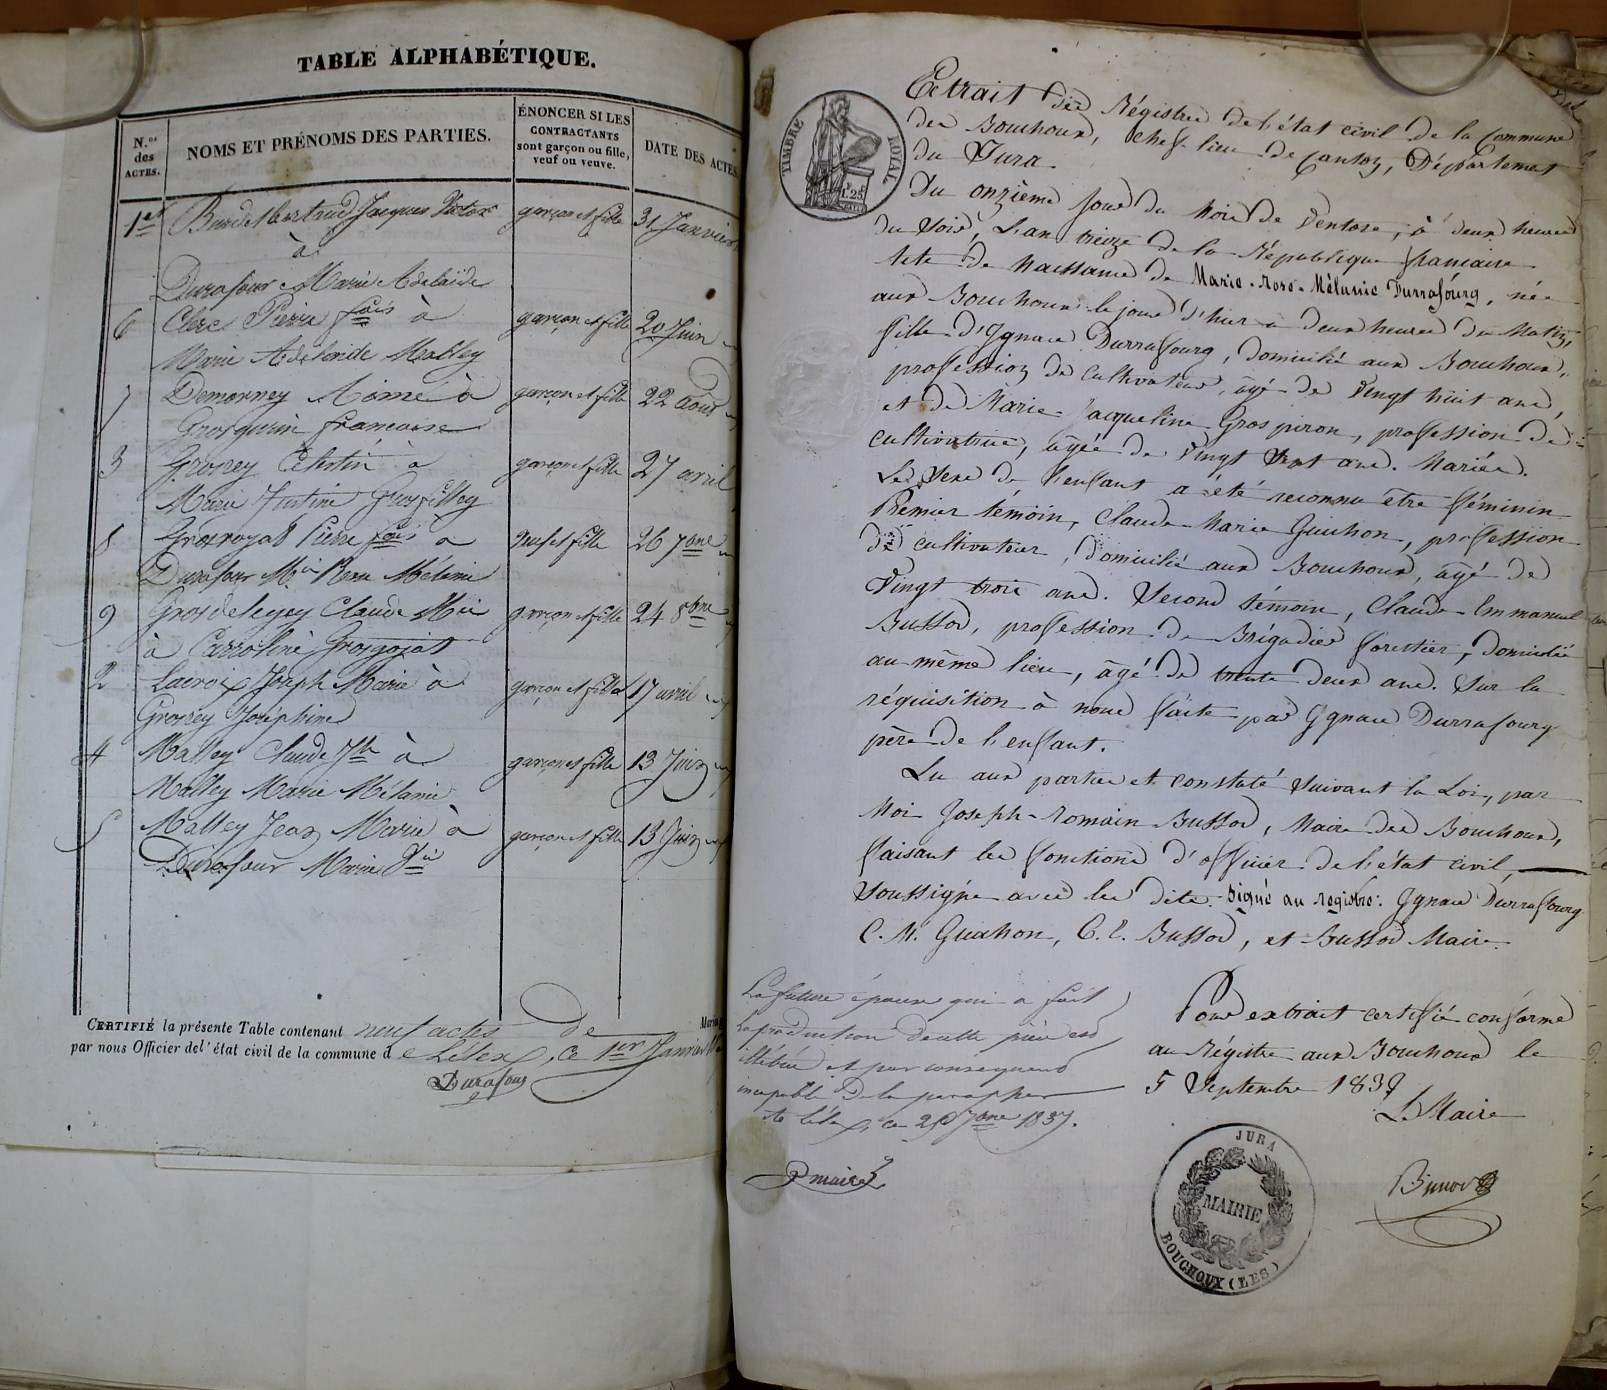 TABLE ALPHABÉTIQUE.
N.os des ACTES.
NOMS ET PRÉNOMS DES PARTIES.
ÉNONCER SI LES CONTRACTANTS sont garçon ou fille, veuf ou veuve.
DATE DES ACTES.
1er Jacques Victor garçon et fille 31 Janvier
à
Durafour Marie Adelaïde
6 Clerc Pierre fois à garçon et fille 20 Juin
Marie Adelaïde Malley
7 Demorney Aimé à garçon et fille 22 Août
Grosgurin francoise
3 Grosrey Célestin à garçon et fille 27 avril
Marie Justine Grosfilley
8 Grosgojat Pierre fois à veuf et fille 26 7bre
Durafour Mie Rose Mélanie
9 Grosdelegey Claude Mie garçon et fille 24 8bre
à Carroline Grosgojat
2 Lacroix Joseph Marie à garçon et fille 17 avril
Grosrey Joséphine
4 Malley Claude Jh à garçon et fille 13 Juin
Malley Marie Mélanie
5 Malley Jean Marie à garçon et fille 13 Juin
Durafour Marie
CERTIFIÉ la présente Table contenant neuf actes de
par nous Officier del'état civil de la commune de Lélex, ce 1er Janvier
Durafour
TIMBRE ROYAL
1.25
Extrait des Régistres de l'état civil de la Commune
des Bouchoux, chef-lieu de canton, Département
du Jura.
Du onzième jour du mois de Ventose, à deux heures
du soir, L'an treize de la République francaise
Acte de Naissance de Marie-Rose-Mélanie Durrafourg, née
aux Bouchoux le jour d'hier à deux heures du Matin,
fille d'Ygnace Durrafourg, domicilié aux Bouchoux,
profession de cultivateur, âgé de Vingt huit ans,
et de Marie Jacqueline Grospiron, profession de
cultivatrice, âgée de Vingt Sept ans. Mariés.
Le Sexe de l'enfant a été reconnu être féminin
Prémier témoin, Claude-Marie Guichon, profession
de cultivateur, domicilié aux Bouchoux, âgé de
Vingt trois ans. Second témoin, Claude-Emmanuel
Bussod, profession de Brigadier forestier, domicilié
au même lieu, âgé de trente deux ans. Sur la
réquisition à nous faite par Ygnace Durrafourg
père de l'enfant.
Lu aux parties et constaté suivant la Loi, par
Moi Joseph-Romain Bussod, Maire des Bouchoux,
faisant les fonctions d'officier de l'état civil,
Soussigné avec les dits. Signé au registre: Ygnace Durrafourg
C. M. Guichon, C. E. Bussod, et Bussod Maire.
La future épouse qui a fait
la production de cette pièce est
illétrée et par conséquens
incapable de la parapher
A Lélex, ce 26 7bre 1837.
maire
Pour extrait certifié conforme
au Régistre aux Bouchoux le
5 Septembre 1837
Le Maire
JURA
MAIRIE
BOUCHOUX (LES)